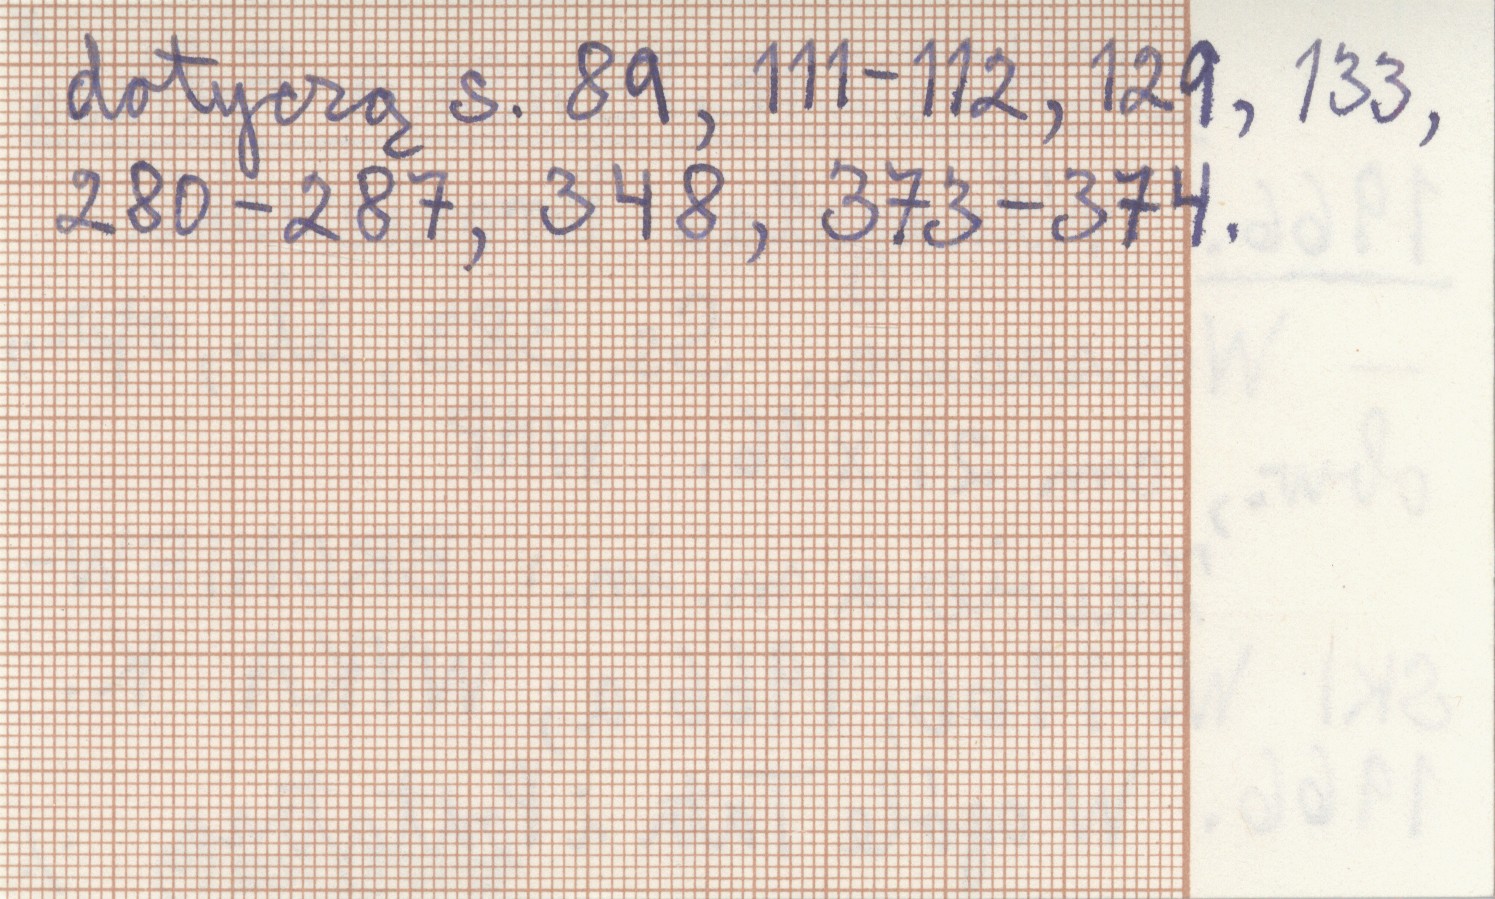 dotyczą s. 89, 111-112, 129, 133,
280-287, 348, 373-374.